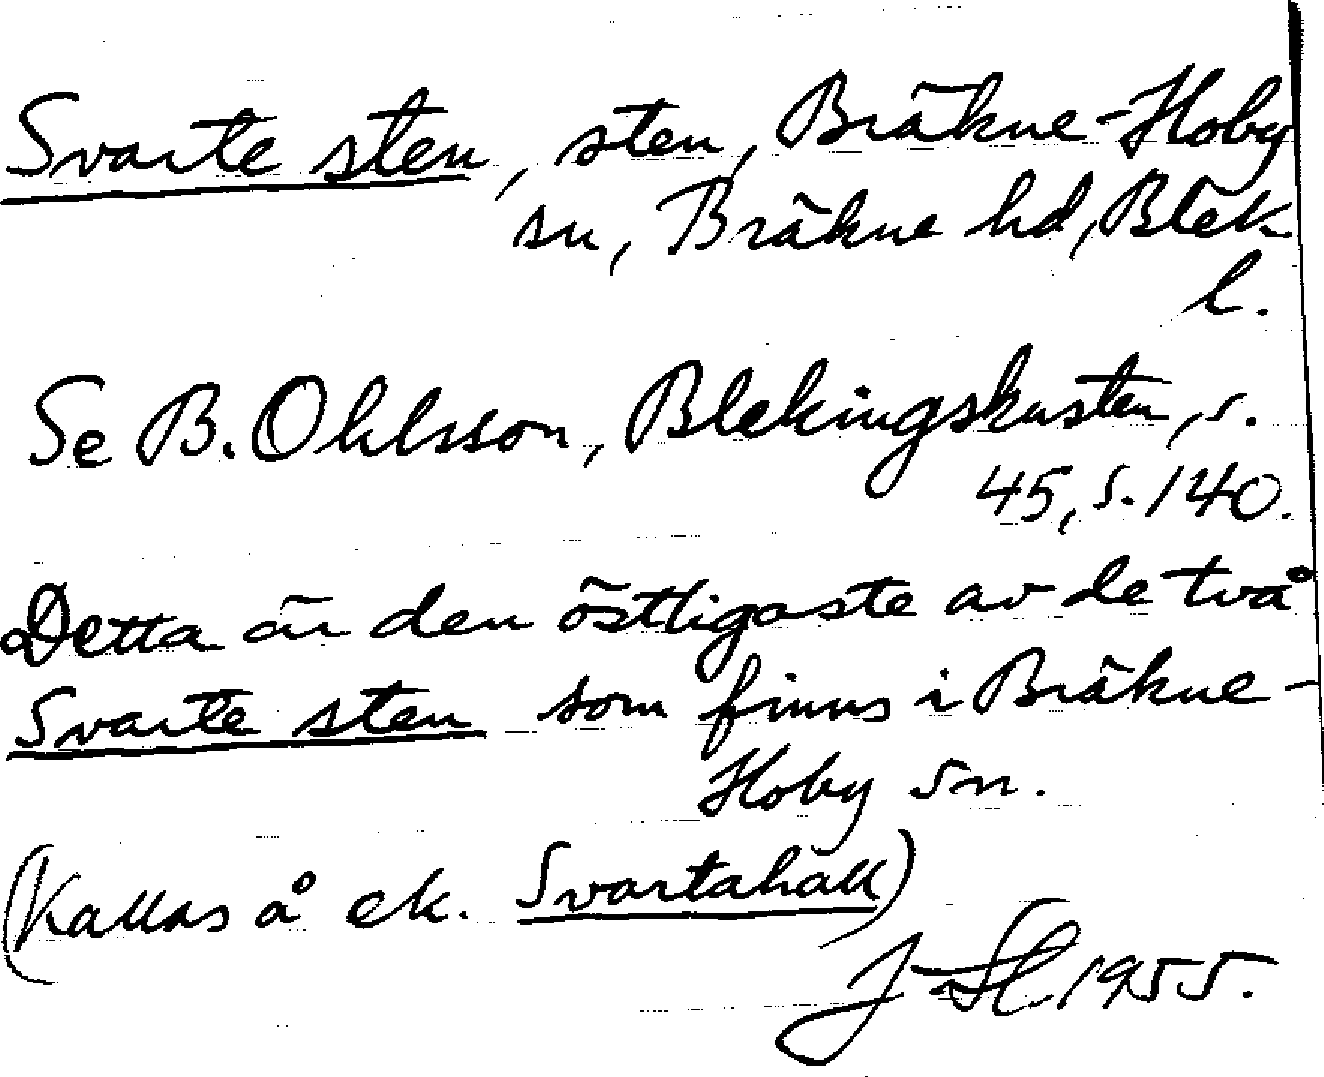 Svarte sten, sten, Bräkne-Hoby
sn, Bräkne hd, Blek
l.
Se B. Ohlsson, Blekingskusten, s.
45, s. 140.
Detta är den östligaste av de två
Svarte sten som finns i Bräkne-
Hoby sn.
(Kallas å ek. Svartahäll)
1955.